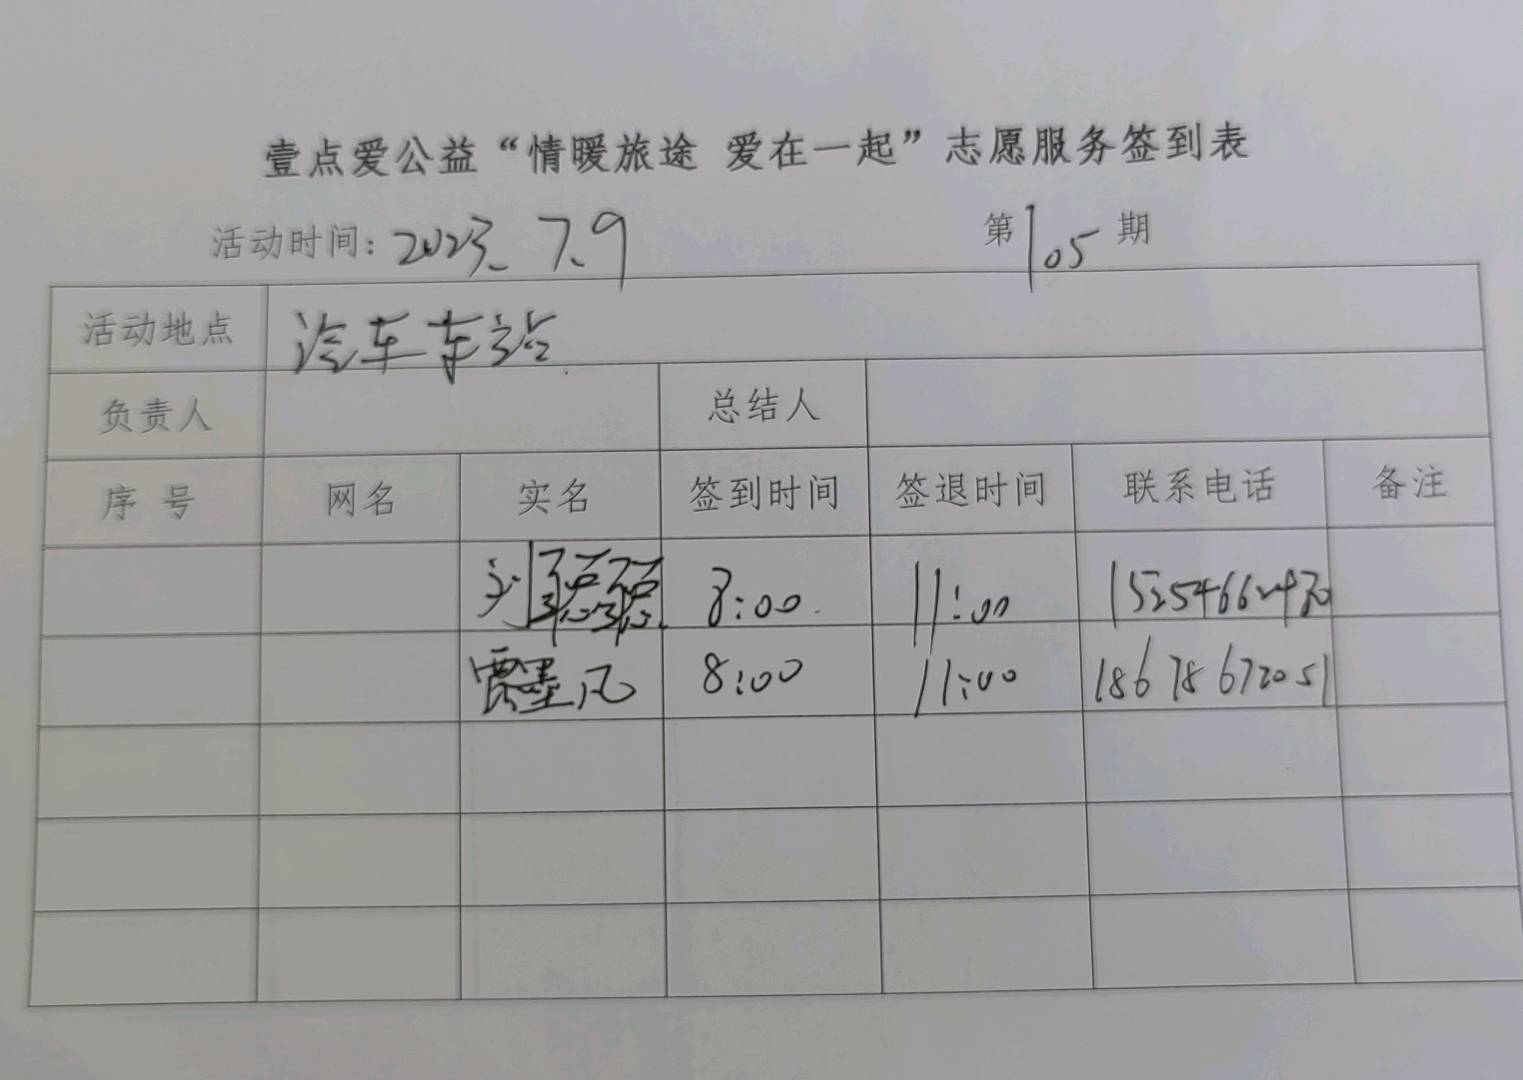 壹点爱公益“情暖旅途 爱在一起”志愿服务签到表
活动时间：2023.7.9 第105期
活动地点 汽车车站
负责人 总结人
序号 网名 实名 签到时间 签退时间 联系电话 备注
刘 8:00 11:00
贾墨风 8:00 11:00 18678672051